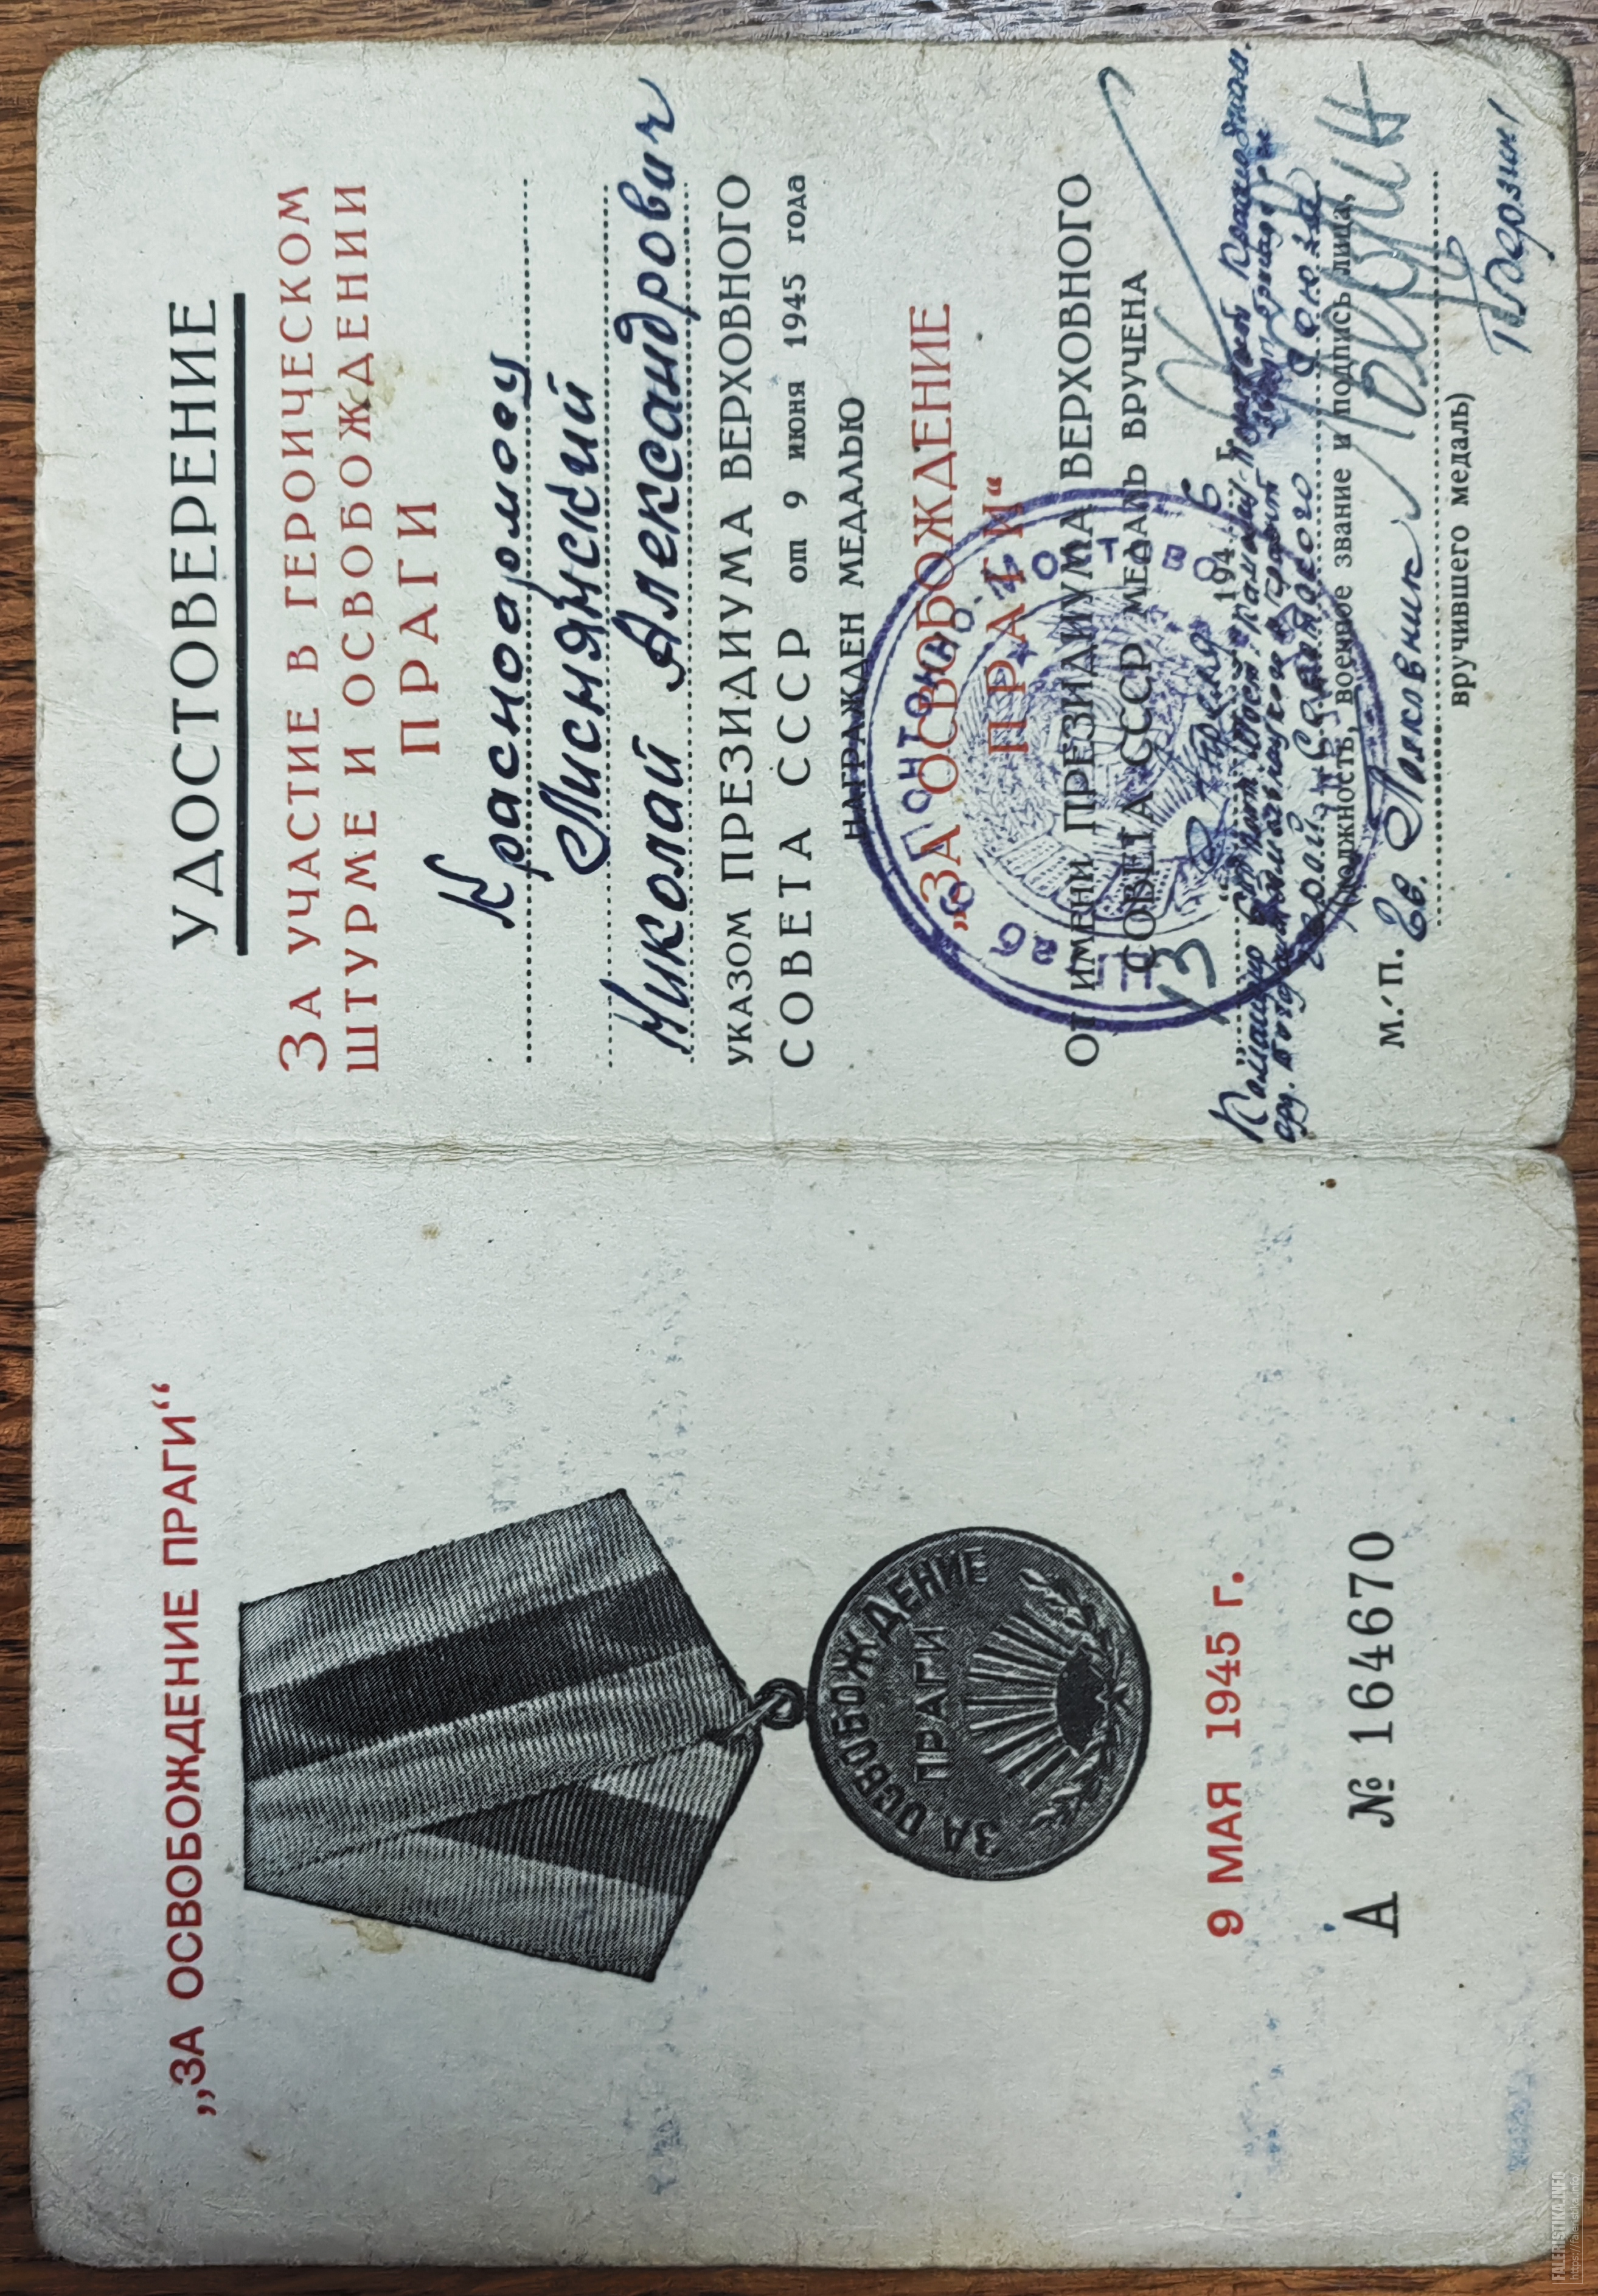 „ЗА ОСВОБОЖДЕНИЕ ПРАГИ“
ЗА ОСВОБОЖДЕНИЕ
ПРАГИ
9 МАЯ 1945 г.
А № 164670
УДОСТОВЕРЕНИЕ
ЗА УЧАСТИЕ В ГЕРОИЧЕСКОМ
ШТУРМЕ И ОСВОБОЖДЕНИИ
ПРАГИ
Красноармеец
Лиснянский
Николай Александрович
УКАЗОМ ПРЕЗИДИУМА ВЕРХОВНОГО
СОВЕТА СССР от 9 июня 1945 года
НАГРАЖДЕН МЕДАЛЬЮ
„ЗА ОСВОБОЖДЕНИЕ
ПРАГИ“
ОТ ИМЕНИ ПРЕЗИДИУМА ВЕРХОВНОГО
СОВЕТА СССР МЕДАЛЬ ВРУЧЕНА
13 194 6 г.
Командир Краснознам.
орд. Богдана Хмельницкого
Герой Советского Союза
(должность, военное звание и подпись лица,
М. П. Гв. Полковник
вручившего медаль)
Берзин
FALERISTIKA.INFO